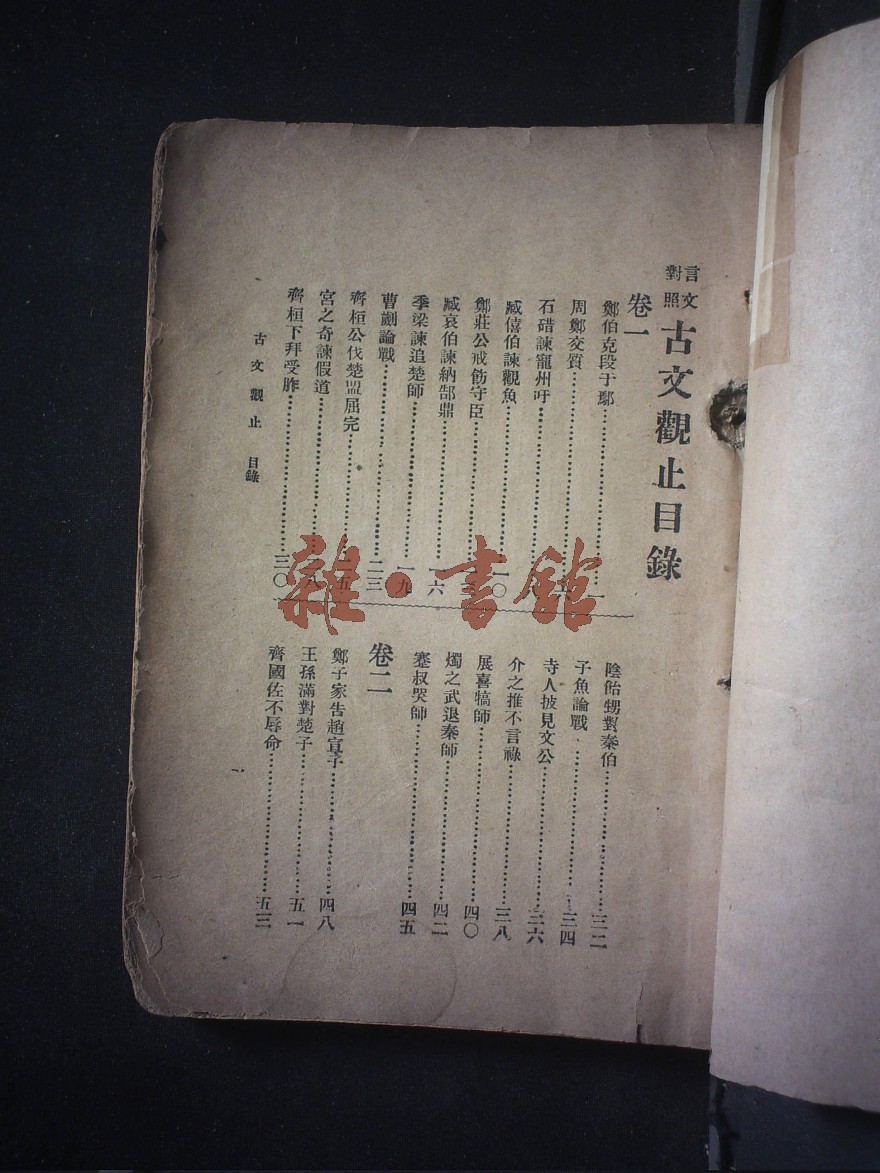 言文對照
古文觀止目錄
卷一
鄭伯克段于鄢……一
周鄭交質……
石碏諫寵州吁……八
臧僖伯諫觀魚……一〇
鄭莊公戒飭守臣……
臧哀伯諫納郜鼎……一六
季梁諫追楚師……一九
曹劌論戰……二三
齊桓公伐楚盟屈完……二五
宮之奇諫假道……八
齊桓下拜受胙……三〇
陰飴甥對秦伯……三二
子魚論戰……三四
寺人披見文公……三六
介之推不言祿……三八
展喜犒師……四〇
燭之武退秦師……四二
蹇叔哭師……四五
卷二
鄭子家告趙宣子……四八
王孫滿對楚子……五一
齊國佐不辱命……五三
古文觀止 目錄
一
雜·書館